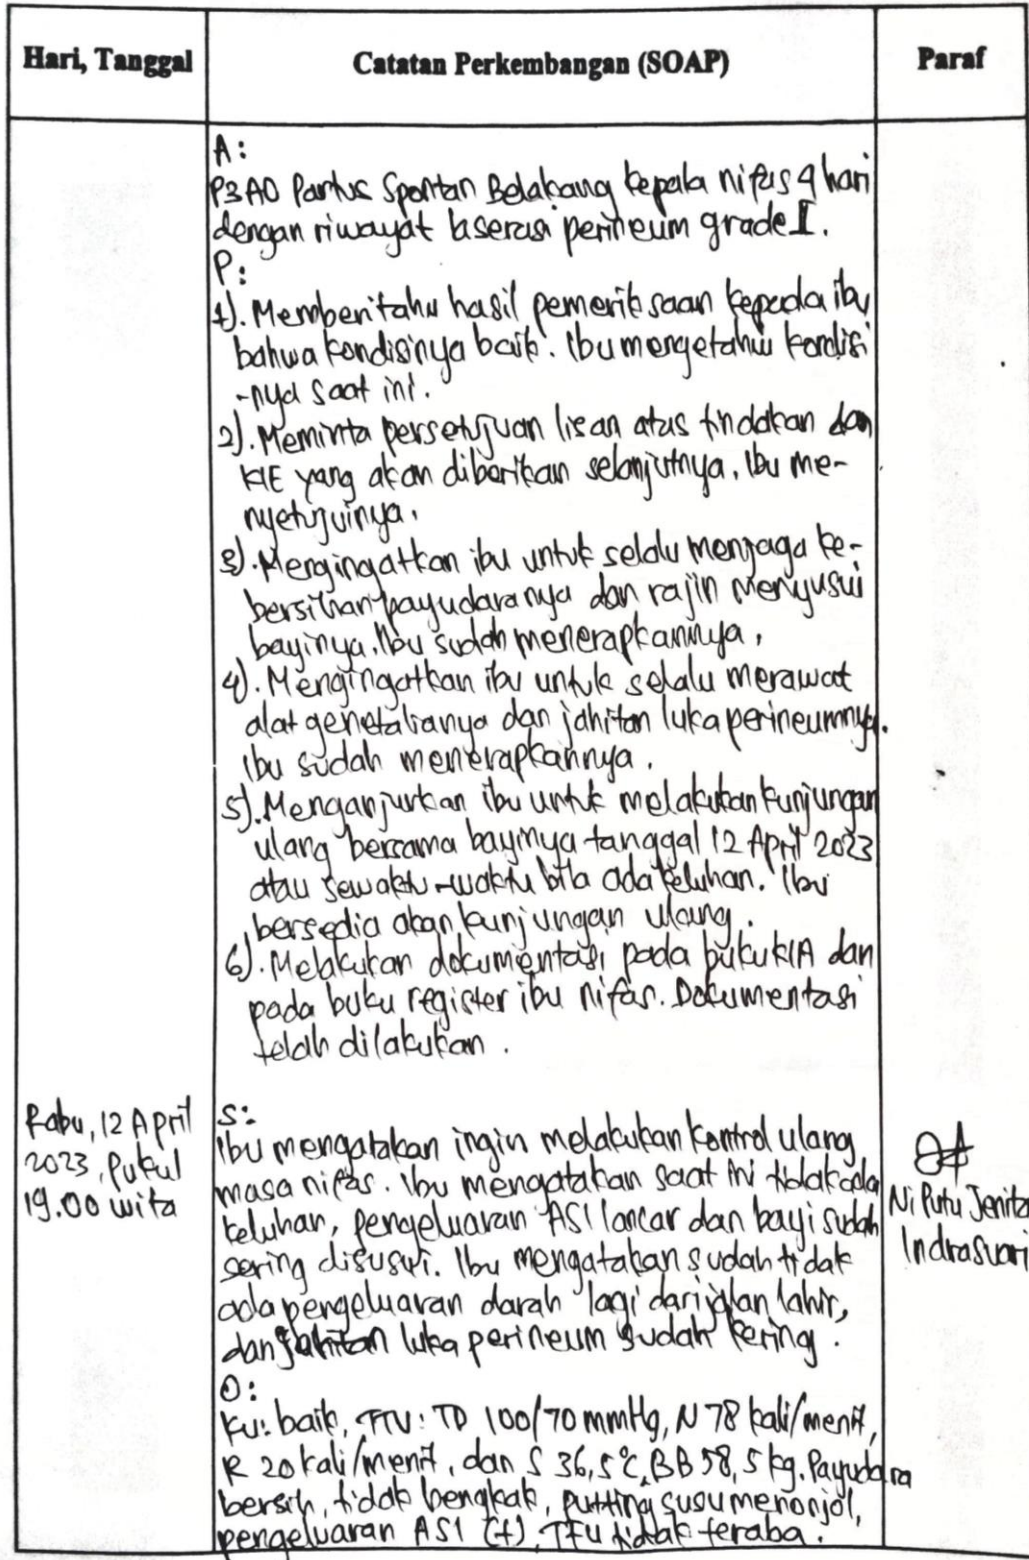 Hari, Tanggal
Catatan Perkembangan (SOAP)
Paraf
A:
P3A0 Partus Spontan Belakang kepala nifas 4 hari
dengan riwayat laserasi perineum grade I.
P:
1). Memberitahu hasil pemeriksaan kepada ibu
bahwa kondisinya baik. Ibu mengetahui kondisi
-nya saat ini.
2). Meminta persetujuan lisan atas tindakan dan
KIE yang akan diberikan selanjutnya. Ibu me-
nyetujuinya.
3). Mengingatkan ibu untuk selalu menjaga ke-
bersihan payudaranya dan rajin menyusui
bayinya. Ibu sudah menerapkannya.
4). Mengingatkan ibu untuk selalu merawat
alat genetalianya dan jahitan luka perineumnya.
Ibu sudah menerapkannya.
5). Menganjurkan ibu untuk melakukan kunjungan
ulang bersama bayinya tanggal 12 April 2023
atau sewaktu-waktu bila ada keluhan. Ibu
bersedia akan kunjungan ulang.
6). Melakukan dokumentasi pada buku KIA dan
pada buku register ibu nifas. Dokumentasi
telah dilakukan.
Rabu, 12 April
2023, Pukul
19.00 wita
S:
Ibu mengatakan ingin melakukan kontrol ulang
masa nifas. Ibu mengatakan saat ini tidak ada
keluhan, pengeluaran ASI lancar dan bayi sudah
sering disusui. Ibu mengatakan sudah tidak
ada pengeluaran darah lagi dari jalan lahir,
dan jahitan luka perineum sudah kering.
O:
KU: baik, TTV: TD 100/70 mmHg, N 78 kali/menit,
R 20 kali/menit, dan S 36,5°C, BB 58,5 kg. Payudara
bersih, tidak bengkak, putting susu menonjol,
pengeluaran ASI (+), TFU tidak teraba.
Ni Putu Jenita
Indrasuari